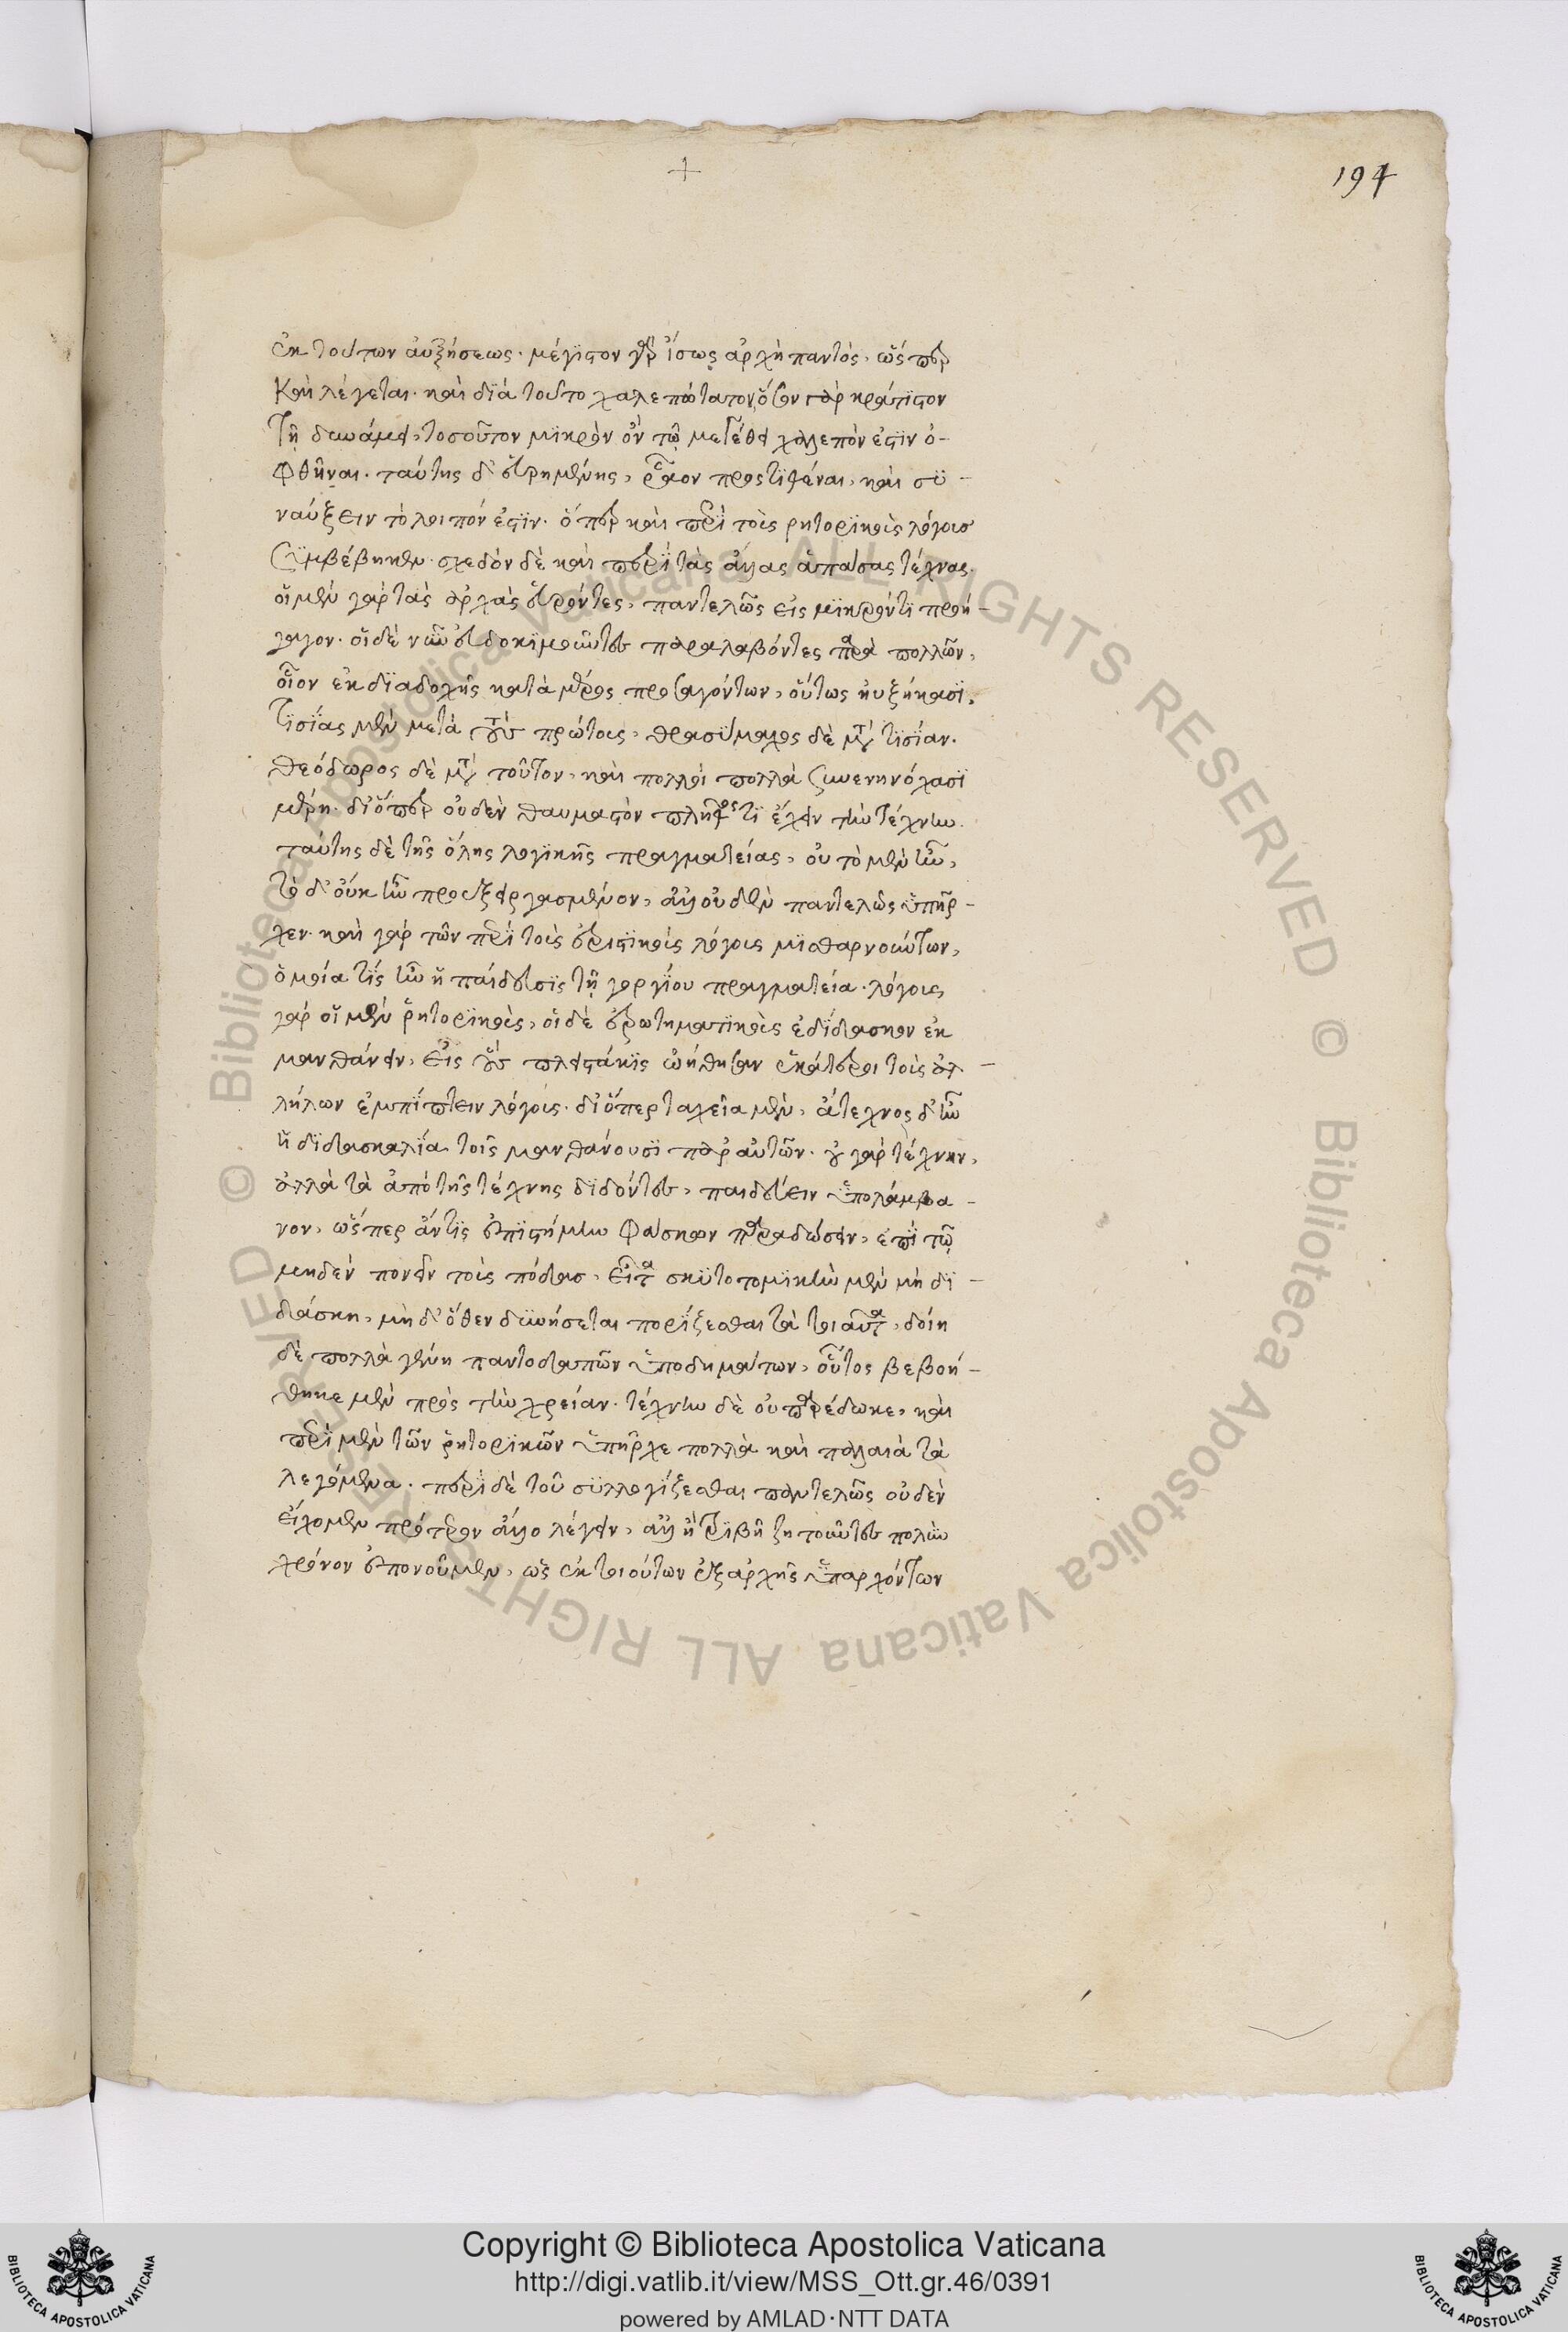 +
194
ἐκ τούτων αὐξήσεως· μέγιστον γὰρ ἴσως ἀρχὴ παντὸς, ὥσπερ
καὶ λέγεται· καὶ διὰ τοῦτο χαλεπώτατον, ὅσον γὰρ κράτιστον
τῇ δυνάμει, τοσοῦτον μικρὸν ὂν τῷ μεγέθει χαλεπόν ἐστιν ὀ-
φθῆναι· ταύτης δ' εὑρημένης, ῥᾷον προστιθέναι, καὶ συ-
ναύξειν τὸ λοιπόν ἐστιν· ὅπερ καὶ περὶ τοὺς ῥητορικοὺς λόγους
συμβέβηκεν· σχεδὸν δὲ καὶ περὶ τὰς ἄλλας ἁπάσας τέχνας·
οἱ μὲν γὰρ τὰς ἀρχὰς εὑρόντες, παντελῶς εἰς μικρόν τι προή-
γαγον· οἱ δὲ νῦν εὐδοκιμοῦντες παραλαβόντες παρὰ πολλῶν,
οἷον ἐκ διαδοχῆς κατὰ μέρος προαγόντων, οὕτως ηὐξήκασι.
τισίας μὲν μετὰ τοὺς πρώτους, θρασύμαχος δὲ μετὰ τισίαν·
θεόδωρος δὲ μετὰ τοῦτον, καὶ πολλοὶ πολλὰ συνενηνόχασι
μέρη· διόπερ οὐδὲν θαυμαστὸν πλῆθός τι ἔχειν τὴν τέχνην.
ταύτης δὲ τῆς ὅλης λογικῆς πραγματείας, οὐ τὸ μὲν ἦν,
τὸ δ' οὐκ ἦν προεξειργασμένον, ἀλλ' οὐδὲν παντελῶς ὑπῆρ-
χεν· καὶ γὰρ τῶν περὶ τοὺς ἐριστικοὺς λόγους μισθαρνούντων,
ὁμοία τίς ἦν ἡ παίδευσις τῇ γοργίου πραγματεία· λόγους
γὰρ οἱ μὲν ῥητορικοὺς, οἱ δὲ ἐρωτηματικοὺς ἐδίδασκον ἐκ
μανθάνειν, εἰς οὓς πλειστάκις ᾠήθησαν ἑκάτεροι τοὺς ἀλ-
λήλων ἐμπίπτειν λόγους· διόπερ ταχεῖα μὲν, ἄτεχνος δ' ἦν
ἡ διδασκαλία τοῖς μανθάνουσι παρ' αὐτῶν· οὐ γὰρ τέχνην,
ἀλλὰ τὰ ἀπὸ τῆς τέχνης διδόντες, παιδεύειν ὑπολάμβα-
νον, ὥσπερ ἄν τις ἐπιστήμην φάσκων παραδώσειν, ἐπὶ τῷ
μηδὲν πονεῖν τοὺς πόδας, εἶτα σκυτοτομικὴν μὲν μὴ δι-
δάσκη, μὴ δ' ὅθεν δυνήσεται πορίζεσθαι τὰ τοιαῦτα, δοίη
δὲ πολλὰ γένη παντοδαπῶν ὑποδημάτων, οὗτος βεβοή-
θηκε μὲν πρὸς τὴν χρείαν· τέχνην δὲ οὐ παρέδωκε, καὶ
περὶ μὲν τῶν ῥητορικῶν ὑπῆρχε πολλὰ καὶ παλαιὰ τὰ
λεγόμενα· περὶ δὲ τοῦ συλλογίζεσθαι παντελῶς οὐδὲν
εἴχομεν πρότερον ἄλλο λέγειν, ἀλλ' ἢ τριβῇ ζητοῦντες πολὺν
χρόνον ἐπονοῦμεν, ὡς ἐκ τοιούτων ἐξ ἀρχῆς ὑπαρχόντων
© Biblioteca Apostolica Vaticana ALL RIGHTS RESERVED © Biblioteca Apostolica Vaticana ALL RIGHTS RESERVED
BIBLIOTECA APOSTOLICA VATICANA
Copyright © Biblioteca Apostolica Vaticana
http://digi.vatlib.it/view/MSS_Ott.gr.46/0391
powered by AMLAD·NTT DATA
BIBLIOTECA APOSTOLICA VATICANA